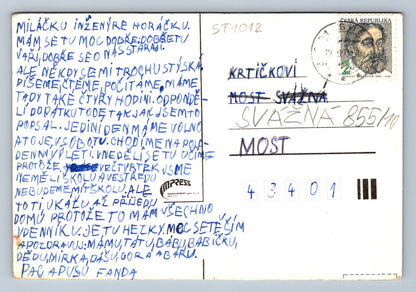 MILÁČKU INŽENÝRE HORÁČKU.
MÁM SE TU MOC DOBŘE. DOBŘE TU
VAŘÍ, DOBŘE SE O NÁS STARAJÍ.
ALE NĚKDY SE MI TROCHU STÝSKÁ.
PÍŠEME, ČTEME, POČÍTÁME, MÁME
TADY TAKÉ ČTYŘY HODINI. ODPONDĚ-
LÍ DODÁTKU TO DE TAK, JAK JSEM TO
POPSAL. JEDINÍ DEN MÁME VOLNO
A TO JE V SOBOTU. CHODÍME NA POLO
DENNÝ VÝLETI. V NEDĚLI SE TU UČÍME
PROTOŽE VE ČTVRTEK JSME
NEMĚLI ŠKOLU A VE STŘEDU
NEBUDEME MÍT ŠKOLU. ALE
TO TI UKÁŽU AŽ PŘIJEDU
DOMŮ PROTOŽE TO MÁM VŠECHNO
V DENNÍKU. JE TU HEZKY. MOC SE TĚŠÍM
A POZDRAVUJ: MÁMU, TÁTU, BÁBU, BABIČKU,
DĚDU, MIRKA, DÁŠU, IGORA A BÁRU.
PAC A PUSU FANDA
ST 1012
ČESKÁ REPUBLIKA
2
KRTIČKOVI
MOST SVÁŽNÁ
SVAŽNÁ 855/10
MOST
43401
PRESS